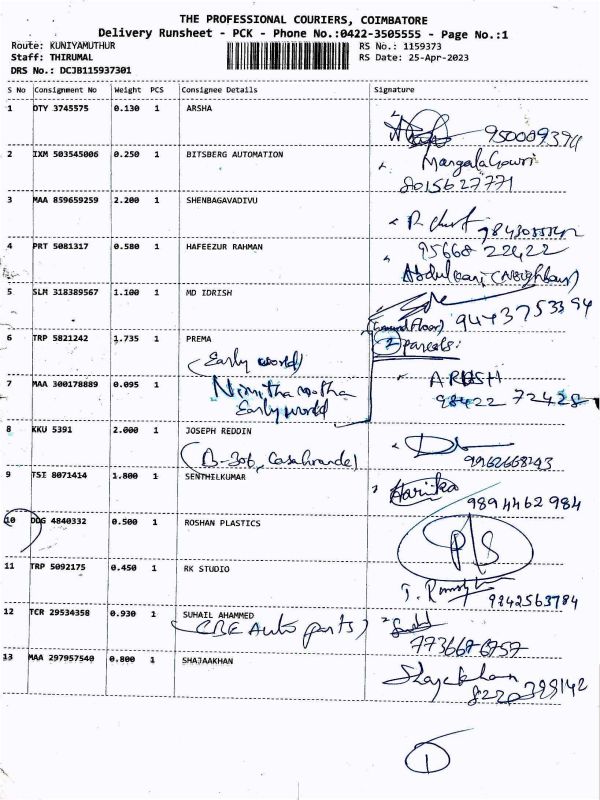 THE PROFESSIONAL COURIERS, COIMBATORE
Delivery Runsheet - PCK - Phone No.:0422-3505555 - Page No.:1
Route: KUNIYAMUTHUR RS No.: 1159373
Staff: THIRUMAL RS Date: 25-Apr-2023
DRS No.: DCJB115937301
S No Consignment No Weight PCS Consignee Details Signature
1 DTY 3745575 0.130 1 ARSHA
950009394
2 IXM 503545006 0.250 1 BITSBERG AUTOMATION MangalaGowri
8015627771
3 MAA 859659259 2.200 1 SHENBAGAVADIVU
4 PRT 5081317 0.580 1 HAFEEZUR RAHMAN 95668 22422
(Neighbour)
5 SLM 318389567 1.100 1 MD IDRISH
(Ground Floor) 9443753394
6 TRP 5821242 1.735 1 PREMA 2 parcels:
(Early world)
7 MAA 300178889 0.095 1 ARBSH
Early world 98422 72428
8 KKU 5391 2.000 1 JOSEPH REDDIN
(B-306, Casagrande) 9962668293
9 TSI 8071414 1.800 1 SENTHILKUMAR Harika
9894462984
10 DDG 4840332 0.500 1 ROSHAN PLASTICS P/S
11 TRP 5092175 0.450 1 RK STUDIO
9842563784
12 TCR 29534358 0.930 1 SUHAIL AHAMMED
(CBE Auto parts) 7736676757
13 MAA 297957540 0.800 1 SHAJAAKHAN Shajakhan
8220399142
1